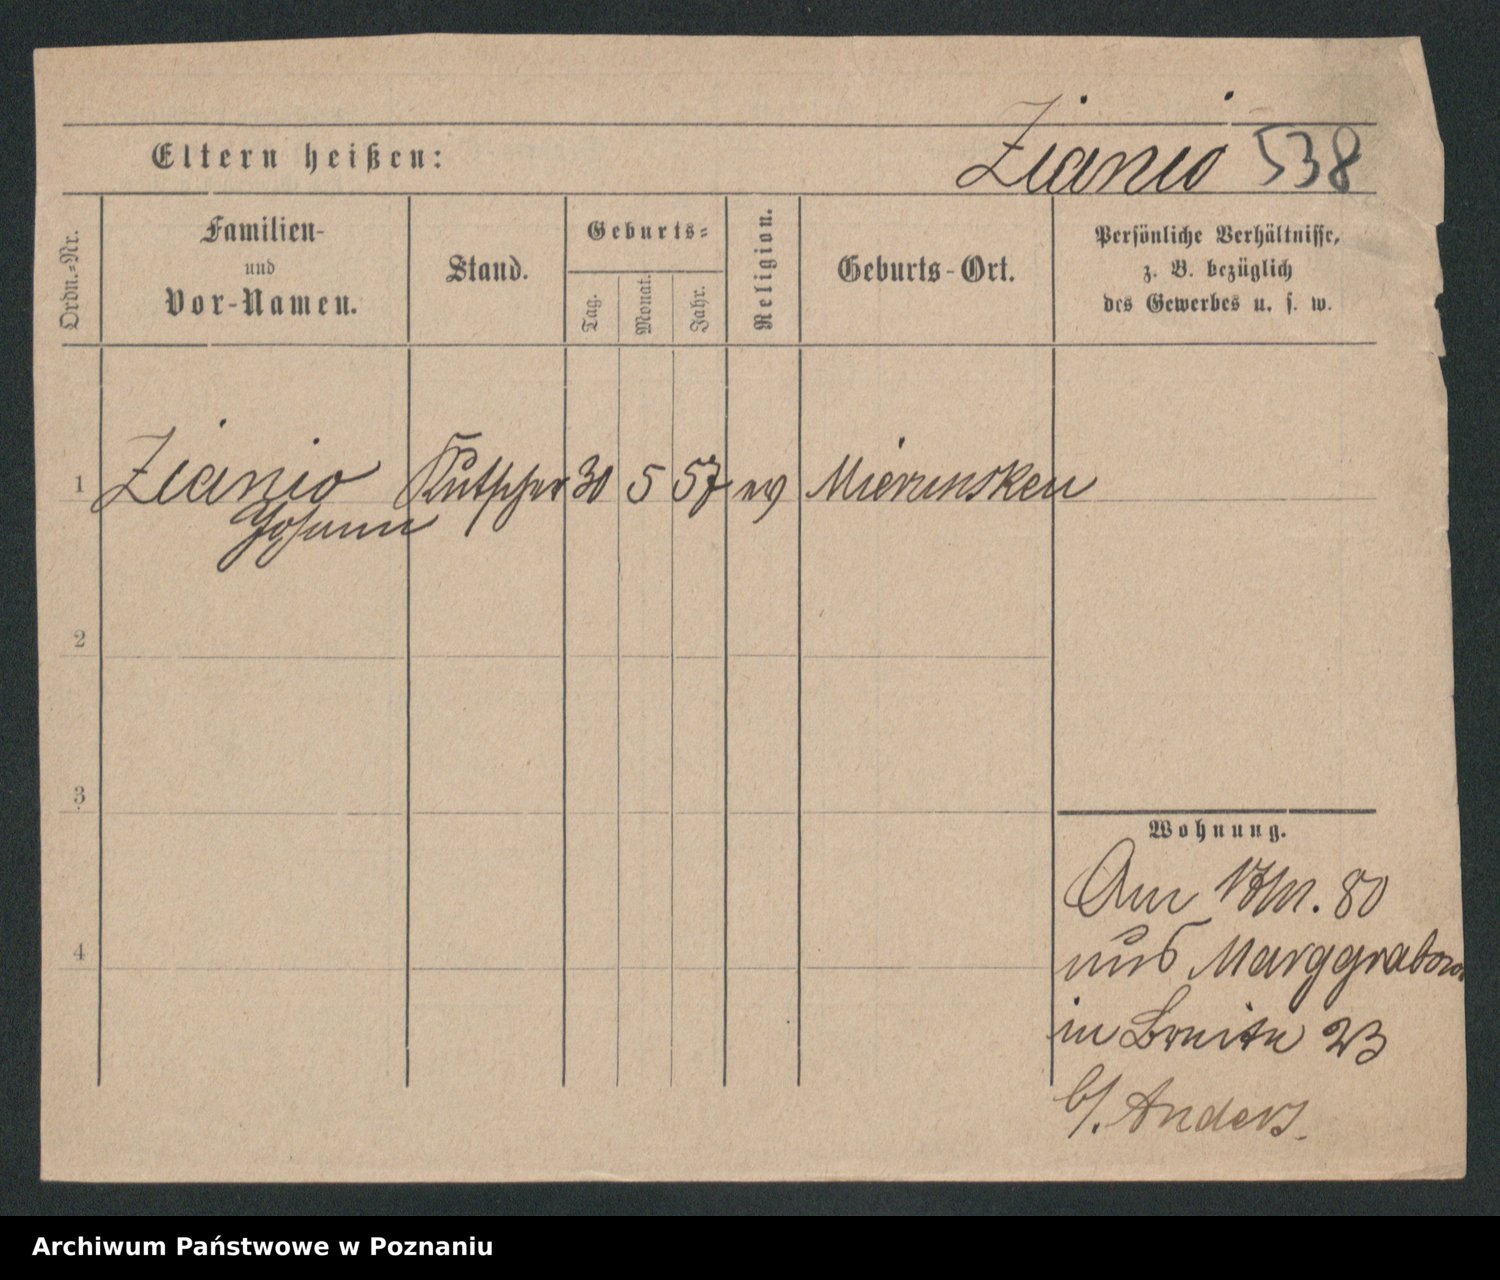 Eltern heißen:
Zianio 538
Ordn.-Nr.
Familien-
und
Vor-Namen.
Stand.
Geburts-
Tag.
Monat.
Jahr.
Religion.
Geburts-Ort.
Persönliche Verhältnisse,
z. B. bezüglich
des Gewerbes u. s. w.
1 Zianio Kutscher 30 5 57 ev Mierunsken
Johann
2
3
4
Wohnung.
Am 80
aus Marggrabowa
in Breite 23
b/. Anders.
Archiwum Państwowe w Poznaniu